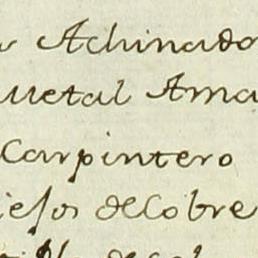 Achinado
Metal Ama
Carpintero
iesos de Cobre